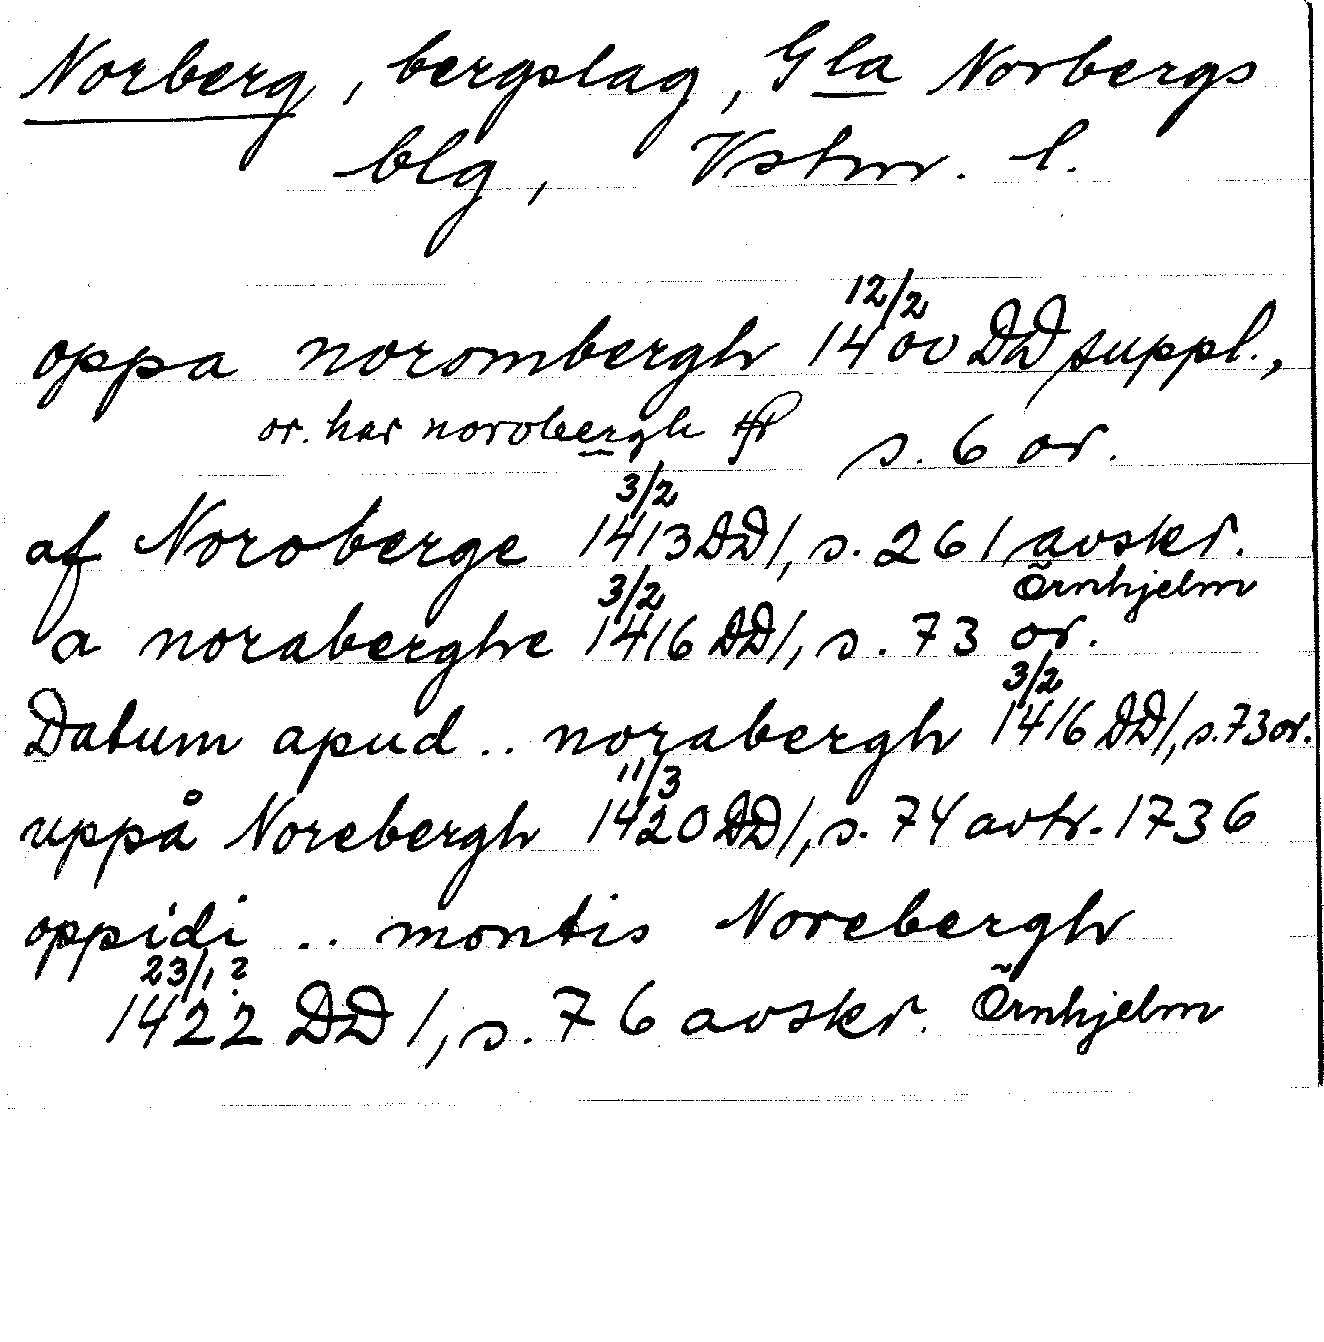 Norberg, bergslag, Gla Norbergs
blg, Vstm. l.
oppa norombergh 12/2 1400 DD suppl.,
or. har norobergh
s. 6 or.
af Noroberge 3/2 1413 DD 1, s. 261 avskr.
Örnhjelm
a noraberghe 3/2 1416 DD 1, s. 73 or.
Datum apud .. norabergh 3/2 1416 DD 1, s. 73 or.
uppå Norebergh 11/3 1420 DD 1, s. 74 avtr. 1736
oppidi .. montis Norebergh
23/1 ? 1422 DD 1, s. 76 avskr. Örnhjelm